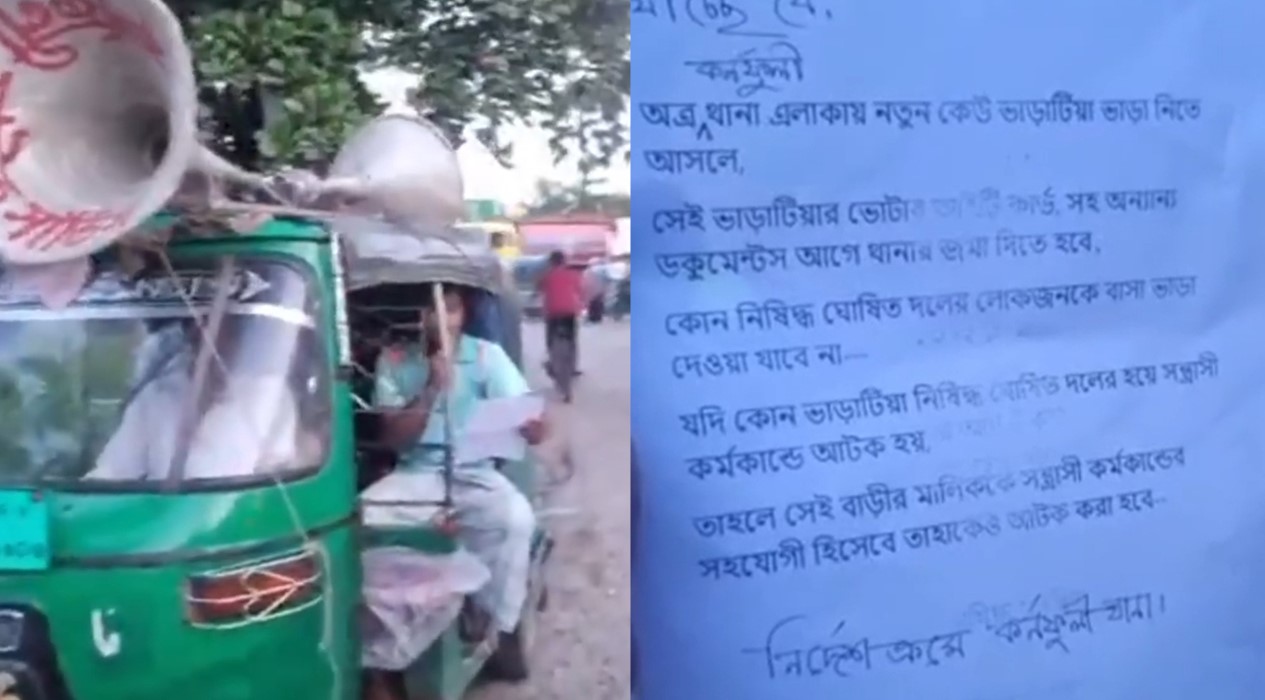 কর্নফুলী
অত্র থানা এলাকায় নতুন কেউ ভাড়াটিয়া ভাড়া নিতে
আসলে,
সেই ভাড়াটিয়ার ভোটার আইডি কার্ড, সহ অন্যান্য
ডকুমেন্টস আগে থানার জমা দিতে হবে,
কোন নিষিদ্ধ ঘোষিত দলের লোকজনকে বাসা ভাড়া
দেওয়া যাবে না---
যদি কোন ভাড়াটিয়া নিষিদ্ধ ঘোষিত দলের হয়ে সন্ত্রাসী
কর্মকান্ডে আটক হয়,
তাহলে সেই বাড়ীর মালিককে সন্ত্রাসী কর্মকান্ডের
সহযোগী হিসেবে তাহাকেও আটক করা হবে--
নির্দেশ ক্রমে কর্নফুলী থানা।